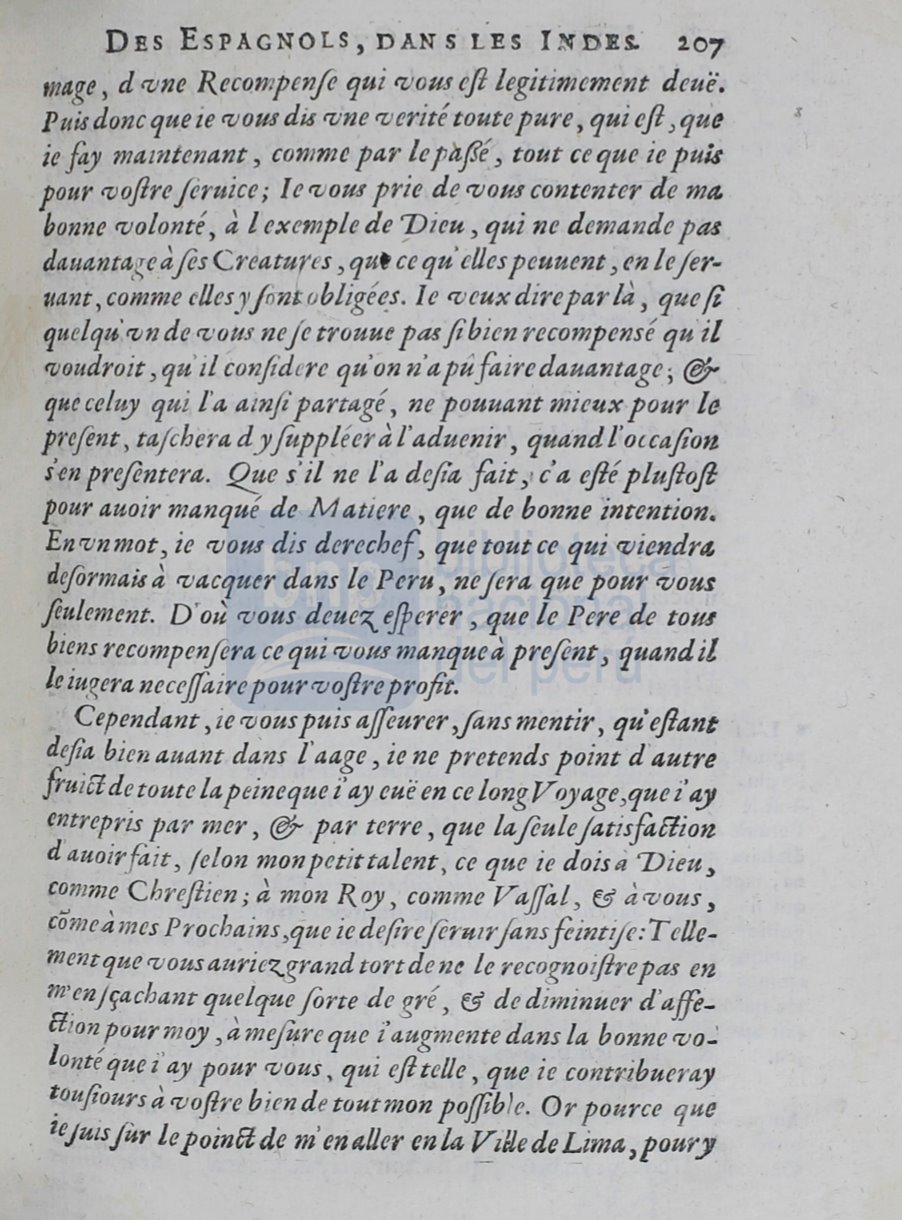 DES ESPAGNOLS, DANS LES INDES. 207
mage, d vne Recompenſe qui vous eſt legitimement deuë.
Puis donc que ie vous dis vne verité toute pure, qui eſt, que
ie fay maintenant, comme par le paßé, tout ce que ie puis
pour voſtre ſeruice; Ie vous prie de vous contenter de ma
bonne volonté, à l exemple de Dieu, qui ne demande pas
dauantage à ſes Creatures, que ce qu'elles peuuent, en le ſer-
uant, comme elles y ſont obligées. Ie veux dire par là, que ſi
quelqu'vn de vous ne ſe trouue pas ſi bien recompensé qu'il
voudroit, qu'il conſidere qu'on n'a pû faire dauantage; &
que celuy qui l'a ainſi partagé, ne pouuant mieux pour le
preſent, taſchera d y ſuppléer à l'aduenir, quand l'occaſion
s'en preſentera. Que s'il ne l'a deſia fait, c'a eſté pluſtoſt
pour auoir manqué de Matiere, que de bonne intention.
En vn mot, ie vous dis derechef, que tout ce qui viendra
deſormais à vacquer dans le Peru, ne ſera que pour vous
ſeulement. D'où vous deuez eſperer, que le Pere de tous
biens recompenſera ce qui vous manque à preſent, quand il
le iugera neceſſaire pour voſtre profit.
Cependant, ie vous puis aſſeurer, ſans mentir, qu'eſtant
deſia bien auant dans l'aage, ie ne pretends point d'autre
fruict de toute la peine que i'ay euë en ce long Voyage, que i'ay
entrepris par mer, & par terre, que la ſeule ſatisfaction
d'auoir fait, ſelon mon petit talent, ce que ie dois à Dieu,
comme Chreſtien; à mon Roy, comme Vaſſal, & à vous,
cõme à mes Prochains, que ie deſire ſeruir ſans feintiſe: Telle-
ment que vous auriez grand tort de ne le recognoiſtre pas en
m'en ſçachant quelque ſorte de gré, & de diminuer d'affe-
ction pour moy, à meſure que i'augmente dans la bonne vo-
lonté que i'ay pour vous, qui eſt telle, que ie contribueray
touſiours à voſtre bien de tout mon poſſible. Or pource que
ie ſuis ſur le poinct de m'en aller en la Ville de Lima, pour y
bnp biblioteca
nacional
del perú